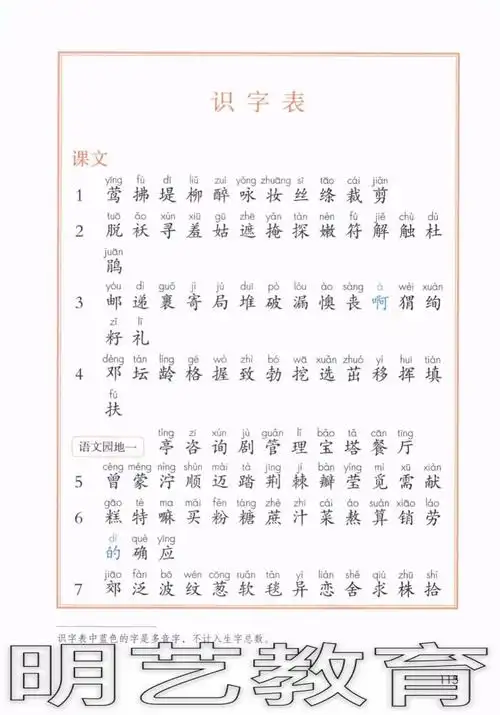 识字表
课文
yīng fú dī liǔ zuì yǒng zhuāng sī tāo cái jiǎn
1 莺 拂 堤 柳 醉 咏 妆 丝 绦 裁 剪
tuō ǎo xún xiū gū zhē yǎn tàn nèn fú jiě chù dù
2 脱 袄 寻 羞 姑 遮 掩 探 嫩 符 解 触 杜
juān
鹃
yóu dì guǒ jì jú duī pò lòu ào sàng a wèi xuàn
3 邮 递 裹 寄 局 堆 破 漏 懊 丧 啊 猬 绚
zǐ lǐ
籽 礼
dèng tán líng gé wò zhì bó wā xuǎn zhuó yí huī tián
4 邓 坛 龄 格 握 致 勃 挖 选 茁 移 挥 填
fú
扶
语文园地一
tíng zī xún jù guǎn lǐ bǎo tǎ cān tīng
亭 咨 询 剧 管 理 宝 塔 餐 厅
céng méng nìng shùn mài tà jīng jí bàn yíng mì xū xiàn
5 曾 蒙 泞 顺 迈 踏 荆 棘 瓣 莹 觅 需 献
gāo tè ma mǎi fěn táng zhè zhī cài áo suàn xiāo láo
6 糕 特 嘛 买 粉 糖 蔗 汁 菜 熬 算 销 劳
dí què yīng
的 确 应
jiāo fàn bō wén cōng ruǎn tǎn yì liàn shě qiú zhū shí
7 郊 泛 波 纹 葱 软 毯 异 恋 舍 求 株 拾
识字表中蓝色的字是多音字，不计入生字总数。
明艺教育
113